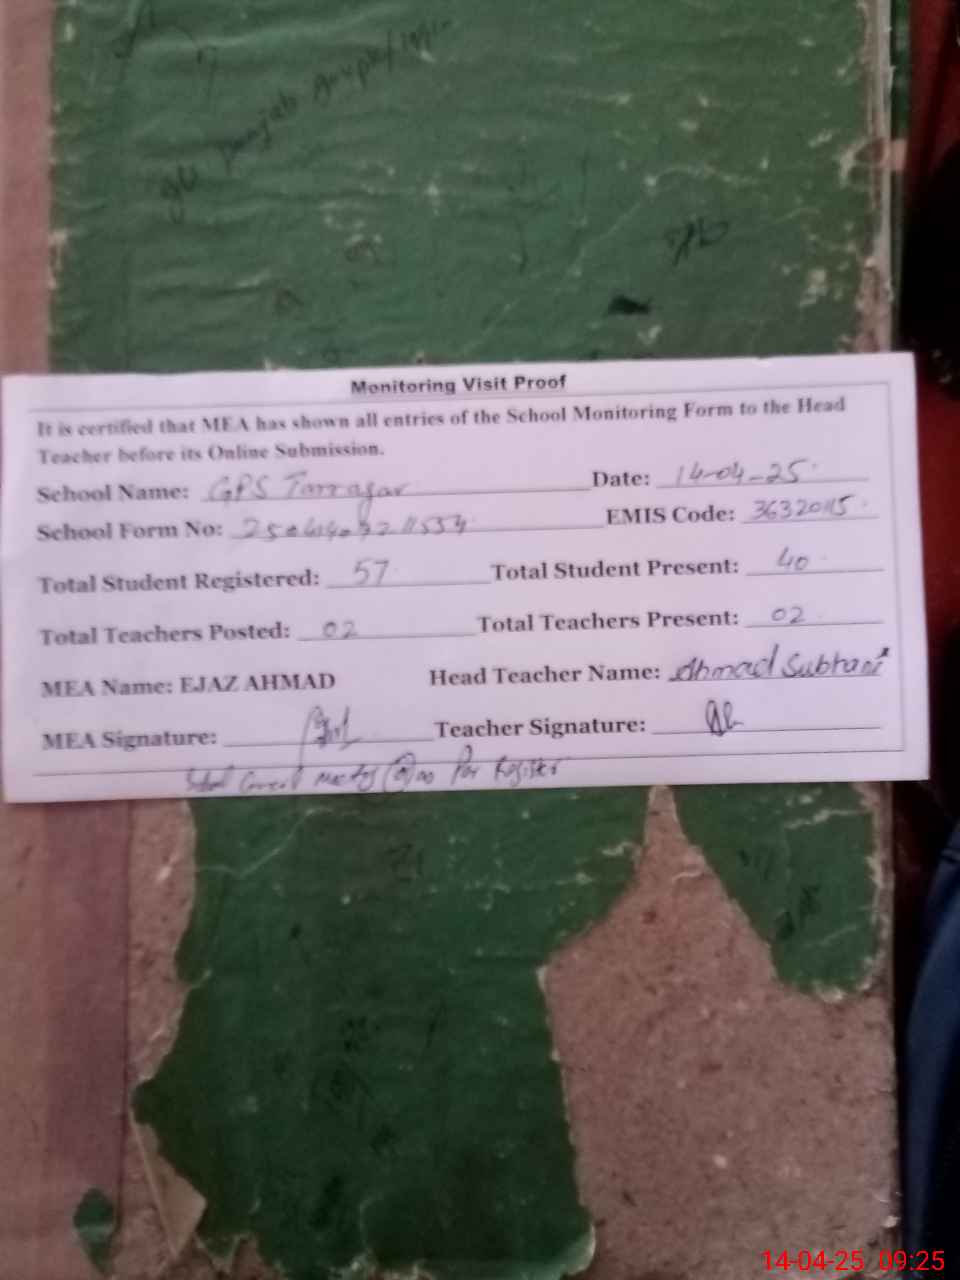 Monitoring Visit Proof
It is certified that MEA has shown all entries of the School Monitoring Form to the Head
Teacher before its Online Submission.
School Name: GPS Tarragar Date: 14-04-25
School Form No: EMIS Code: 36320115
Total Student Registered: 57 Total Student Present: 40
Total Teachers Posted: 02 Total Teachers Present: 02
MEA Name: EJAZ AHMAD Head Teacher Name: Ahmad Subhani
MEA Signature: Teacher Signature:
Par Register
14-04-25 09:25